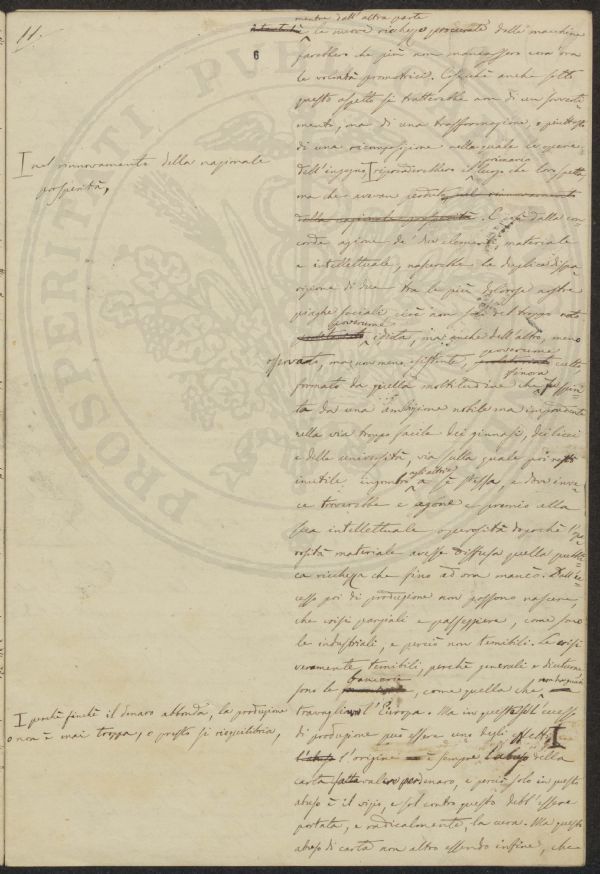 11.
6
mentre dall'altra parte
e le nuove ricchezze procurate dalle macchine
farebbero che più non mancassero cura ora
le volontà promotrici. Cosicché anche sotto
questo aspetto si tratterebbe non di un sovverti=
mento, ma di una trasformazione, o piuttosto
di una ricomposizione nella quale le opere
primario
dell'ingegno riprenderebbero il luogo che loro spetta,
ma che avevan perduto, nel rinnovamento
della nazionale prosperità. E così dalla con=
corde azione de' due elementi, materiale
e intellettuale, nascerebbe la duplice dispa=
rizione di due tra le più dolorose nostre
piaghe sociali cioè non sol del troppo noto
governume
, ma anche dell'altro, meno
osservato, ma non meno esistente,
governume
colto
finora
formato da quella moltitudine che fu spin=
ta da una ambizione nobile ma imponente
nella via troppo facile dei ginnasi, dei licei
e delle università, via sulla quale poi restò
agli altri e
inutile ingombro a sè stessa, e dove inve=
ce troverebbe e agone e premio alla
sua intellettuale operosità dopochè l'ope=
rosità materiale avesse diffusa quella pubbli=
ca ricchezza che fino ad ora mancò. Dall'ec=
cesso poi di produzione non possono nascere,
che crisi parziali e passeggiere, come sono
le industriali, e perciò non temibili. Le crisi
veramente temibili, perchè generali e diuturne
bancarie
sono le , come quella che
travagliano l'Europa. Ma in queste se l'eccesso
di produzione può essere uno degli effetti,
l'abuso l'origine è sempre l'abuso della
carta fatta valere per denaro, e perciò solo in questo
abuso è il vizio, e sol contro questo debb'essere
portata, e radicalmente, la cura. Ma questo
abuso di carta non altro essendo infine, che
nel rinnovamento della nazionale
prosperità,
perchè finchè il denaro abbonda, la produzione
o non è mai troppa, o presto si riequilibria,
PROSPERITATI PVB